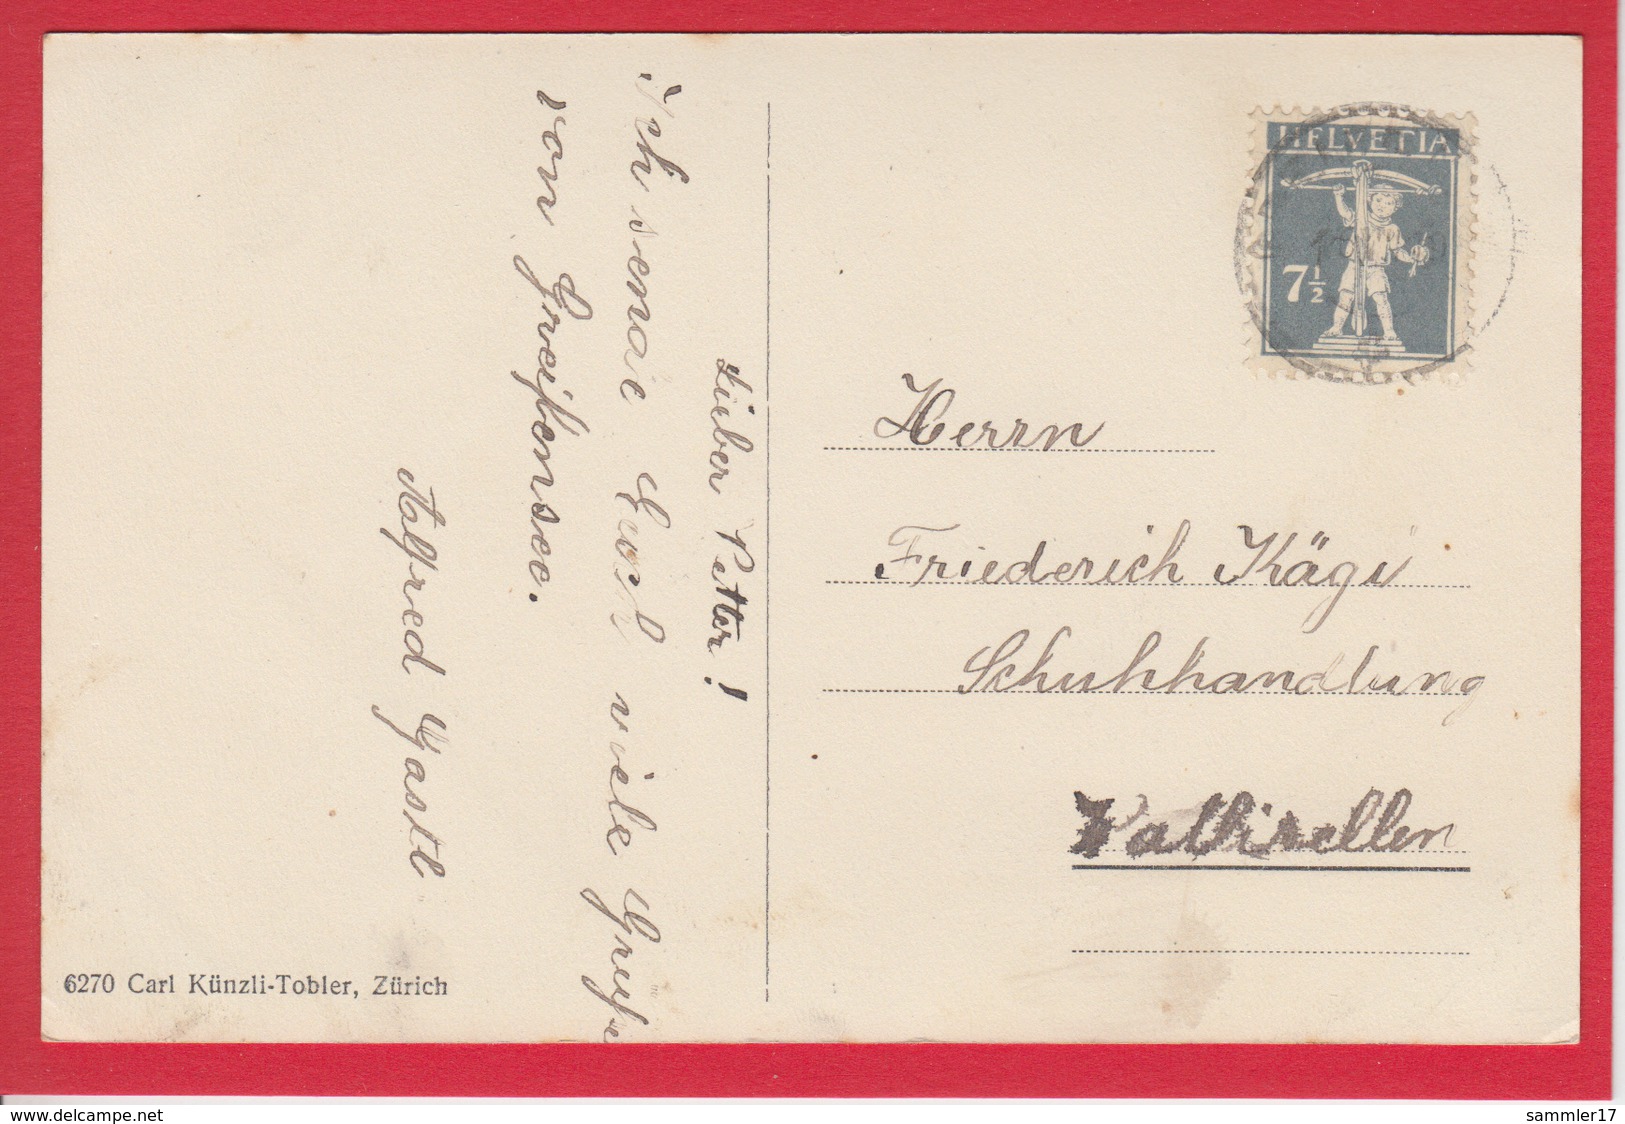 Lieber Petter!
Ich sende Euch viele Grüße
von Greifensee.
Alfred Gastl
6270 Carl Künzli-Tobler, Zürich
HELVETIA
7½
Herrn
Friederich Kägi
Schuhhandlung
Wallisellen
www.delcampe.net
sammler17